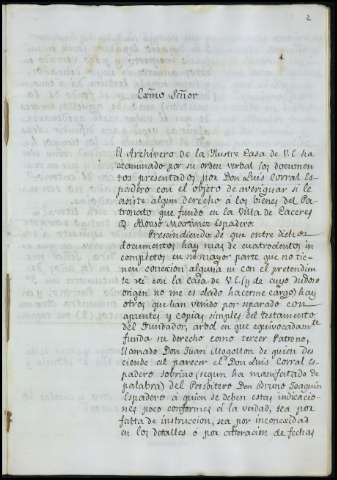 2
Exmo Señor
El Archivero de la Ilustre Casa de V.E. ha
examinado por su orden verbal los documen
tos presentados por Don Luis Corral Es
padero con el objeto de averiguar si le
asiste algun derecho á los bienes del Pa
tronato que fundó en la Villa de Caceres
D. Alonso Martinez Espadero.
Prescindiendo de que entre dichos
documentos hay mas de cuatrocientos in
completos, en su mayor parte que no tie-
nen conecsion alguna ni con el pretendien
te ni con la Casa de V.E. (y de cuyo dudoso
origen no me es dado hacerme cargo) hay
otros que han venido por separado con
apuntes y copias simples del testamento
del Fundador, arbol en que equivocadamte
funda su derecho como tercer Patrono,
llamado Don Juan Mogollon de quien des
ciende al parecer el Don Luis Corral Es
padero sobrino (segun ha manifestado de
palabra) del Presbitero Don Bruno Joaquin
Espadero á quien se deben estas indicacio
nes poco conformes á la verdad, sea por
falta de instruccion, sea por inconecsidad
en los detalles ó por alteracion de fechas